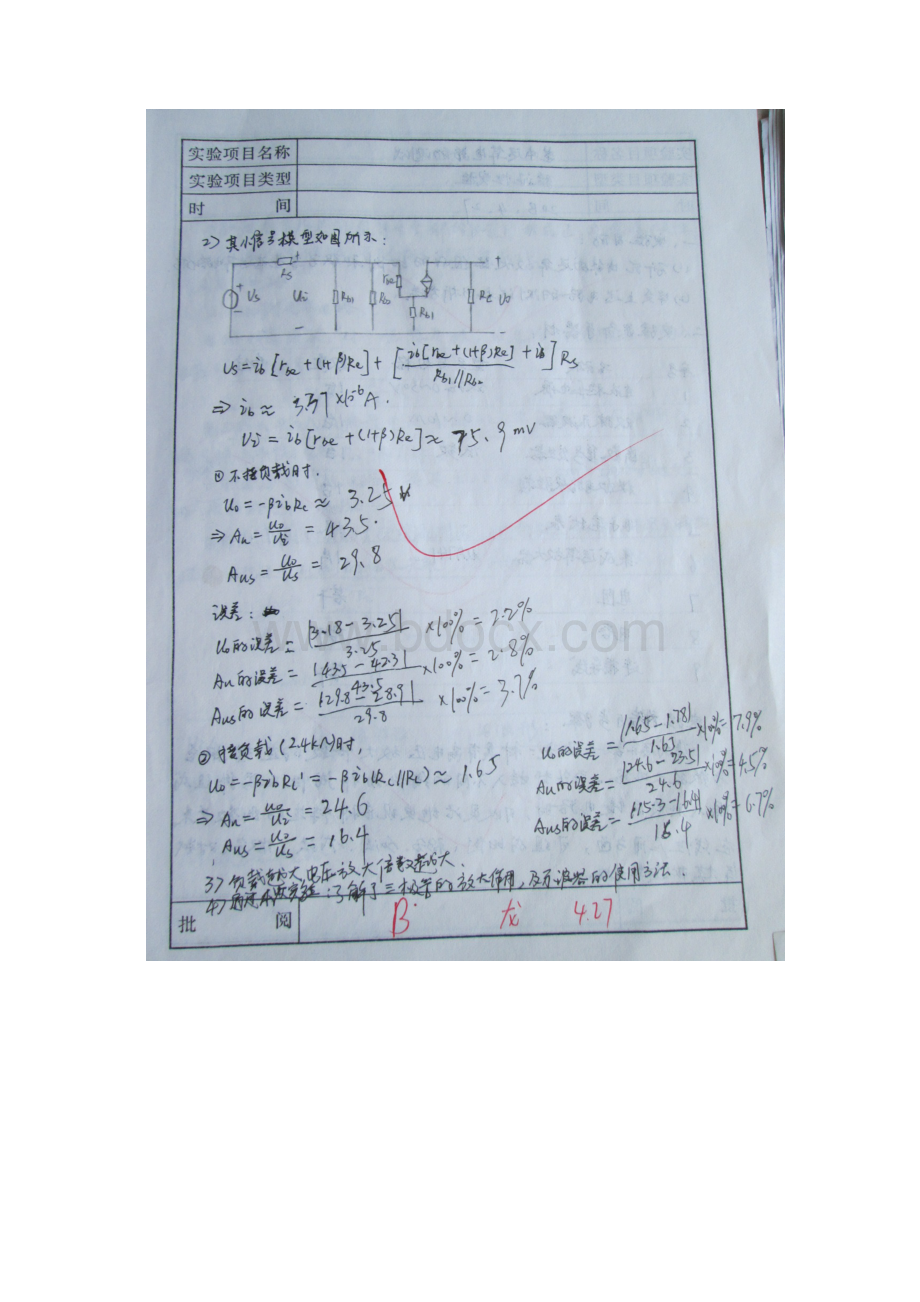 实验项目名称
实验项目类型
时 间
2) 其小信号模型如图所示:
+ Us Rs + Ui Rb1 Rb2 rbe Re1 RL + Uo
Us=ib[rbe+(1+β)Re]+[ib[rbe+(1+β)Re]/Rb1//Rb2+ib]Rs
⇒ ib≈ 3.57×10-6A.
Ui=ib[rbe+(1+β)Re]≈75.9mV
①不接负载时.
Uo=-βibRc≈3.25
⇒Au=Uo/Ui=43.5.
Aus=Uo/Us=29.8
误差:
Uo的误差=|3.18-3.25|/3.25×100%=2.2%
Au的误差=|43.5-42.3|/43.5×100%=2.8%
Aus的误差=|29.8-28.9|/29.8×100%=3.2%
②接负载(2.4kΩ)时,
Uo=-βibRL'=-βib(Rc//RL)≈1.65
⇒Au=Uo/Ui=24.6
Aus=Uo/Us=16.4
Uo的误差=|1.65-1.78|/1.65×100%=7.9%
Au的误差=|24.6-23.5|/24.6×100%=4.5%
Aus的误差=|15.3-16.4|/16.4×100%=6.7%
3)负载越大电压放大倍数越大.
4)通过本次实验:了解了三极管的放大作用,及示波器的使用方法.
批 阅
B 龙 4.27
www.bdocx.com